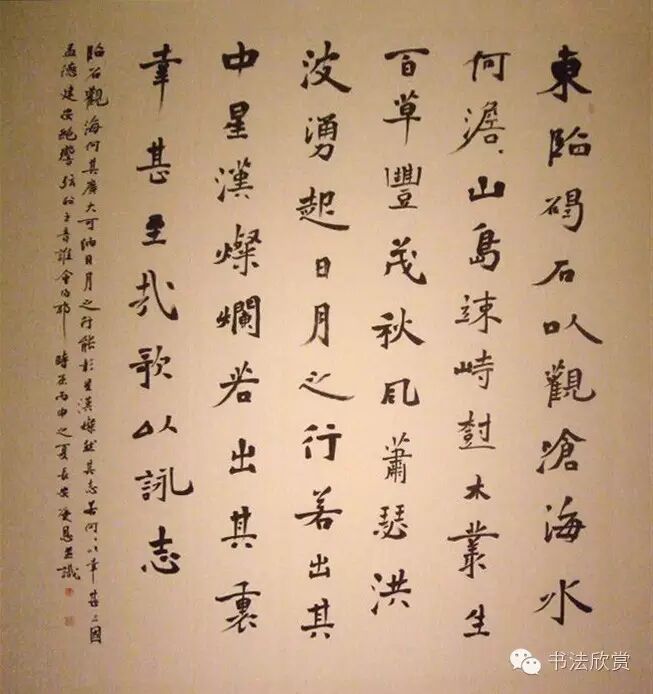 東臨碣石以觀滄海水
何澹、山島竦峙樹木叢生
百草豐茂秋風蕭瑟洪
波湧起日月之行若出其
中星漢燦爛若出其裏
幸甚至哉歌以詠志
臨石觀海何其廣大可納日月之行能影星漢燦然其志若何、幸甚三國
孟德建安絕響弦外之音誰會 時在丙申之夏長安並識
书法欣赏